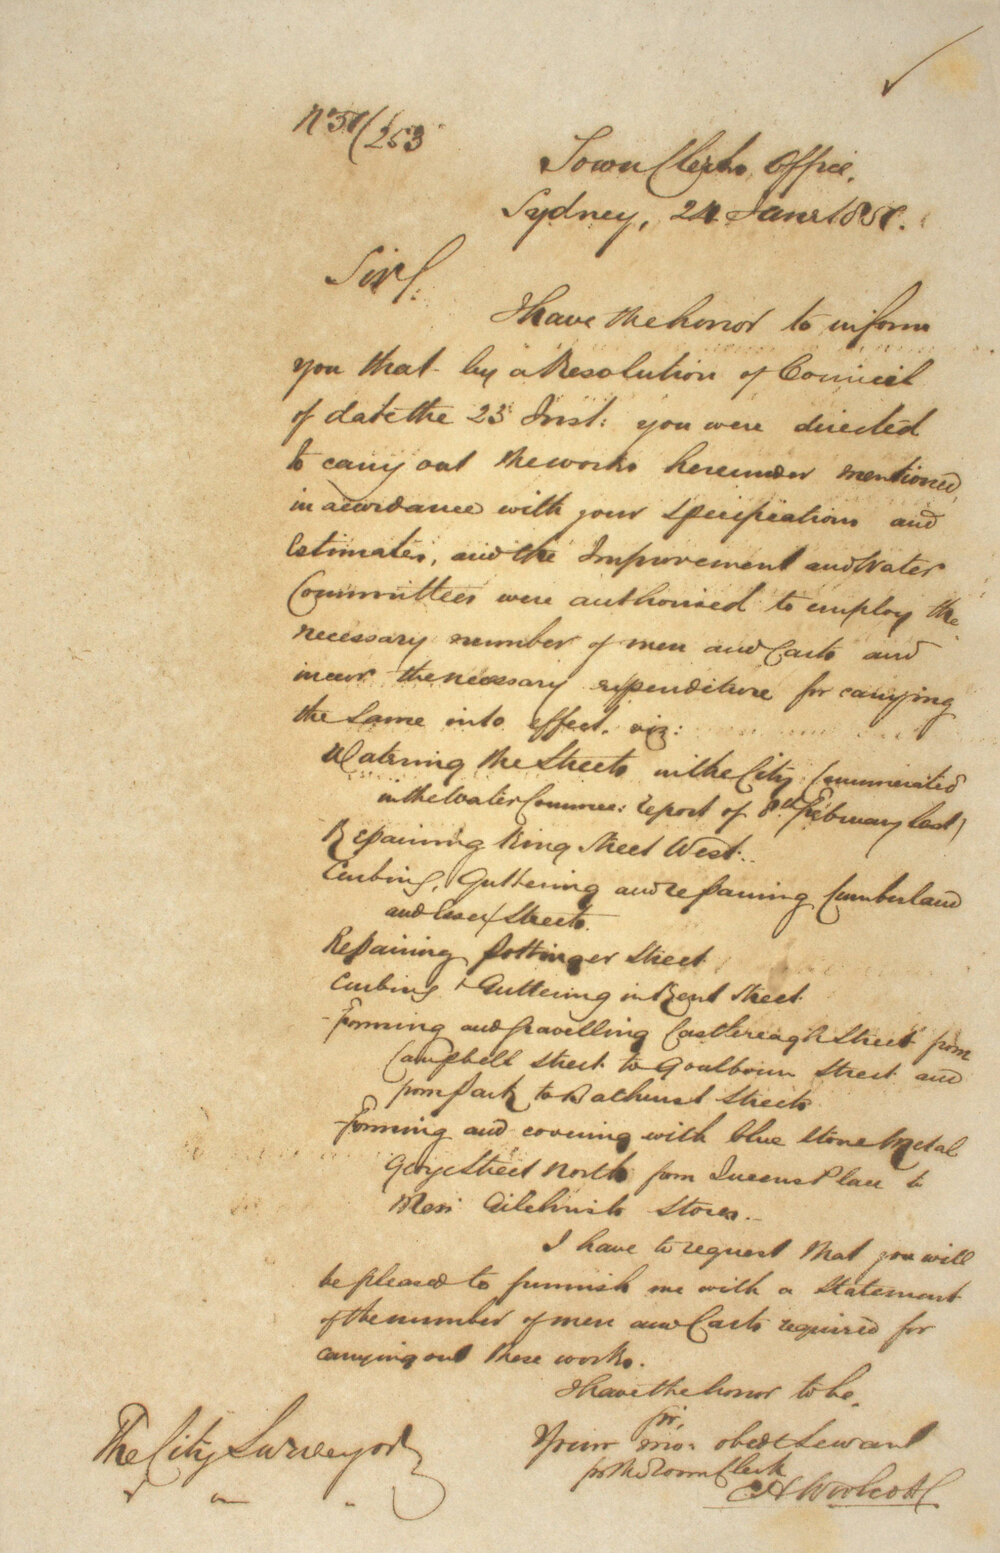 No 57/253
Town Clerks Office.
Sydney, 24 Janr 1857.
Sir/.
I have the honor to inform
you that by a Resolution of Council
of date the 23 Inst: you were directed
to carry out the works hereunder mentioned
in accordance with your Specifications and
Estimates, and the Improvement and Water
Committees were authorised to employ the
necessary number of men and Carts and
incur the necessary expenditure for carrying
the same into effect. viz:
Watering the Streets in the City (enumerated
in the Water Commee: report of 8th February last)
Repairing King Street West.
Curbing, Guttering and repairing Cumberland
and Essex Streets.
Repairing Pottinger Street
Curbing & Guttering in Bent Street
Forming and Gravelling Castlereagh Street from
Campbell Street to Goulbourn Street and
from Park to Bathurst Streets
Forming and covering with blue Stone Metal
George Street North from Queens Place to
Messrs Gilchrists Stores.
I have to request that you will
be pleased to furnish me with a Statement
of the number of men and Carts required for
carrying out these works.
I have the honor to be,
Sir,
Your mo: obedt Servant
for the Town Clerk
The City Surveyor
C H Woolcott